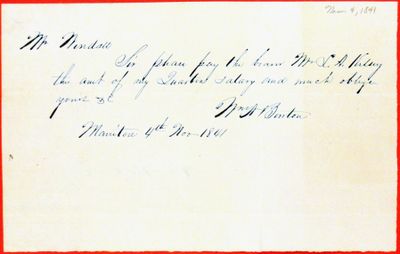 Nov 4, 1841
Mr Windsell
Sir please pay the bearer Mr L. A. Kilsey
the amt of my Quarters salary and much oblige
yours &c
Wm A Benton
Manitou 4th Nov 1841